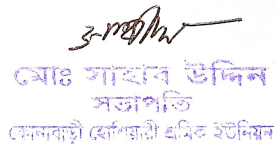 মোঃ সাহাব উদ্দিন
সভাপতি
কোনাবাড়ী হোশিয়ারী শ্রমিক ইউনিয়ন